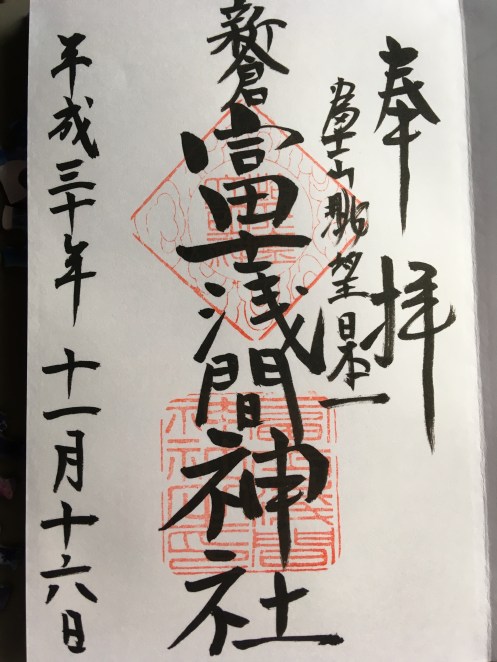 奉拝
富士山眺望日本一
新倉富士浅間神社
平成三十年十一月十六日